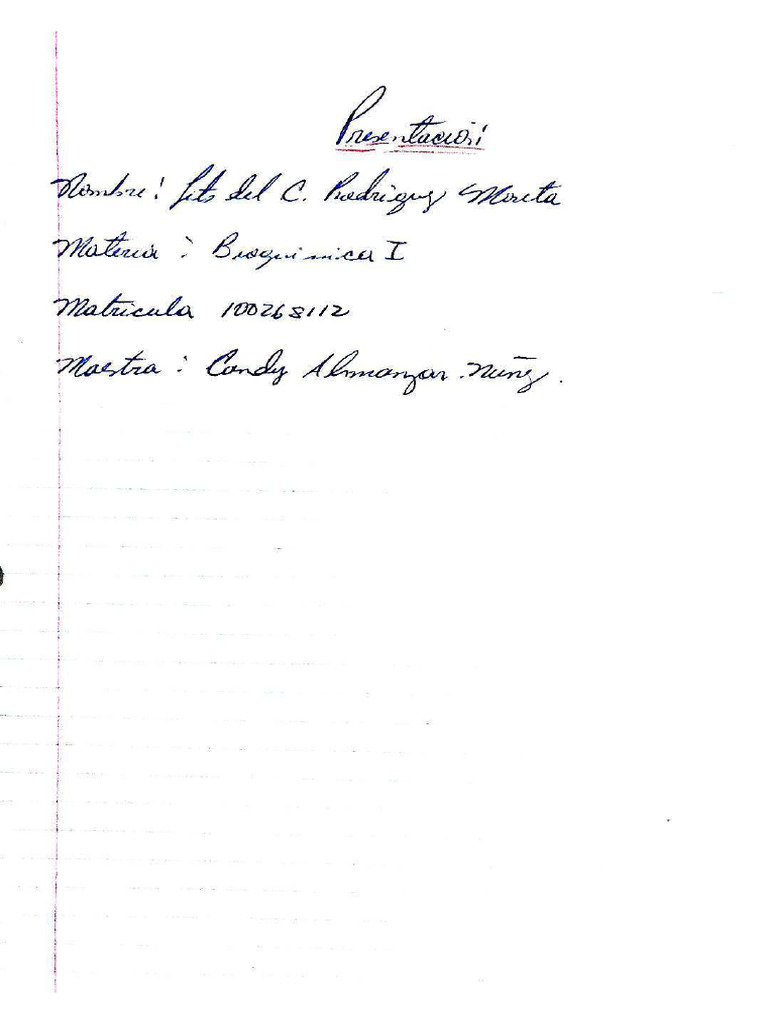 Presentación
Nombre: del C. Rodriguez Moreta
Materia: Bioquimica I
Matricula 100268112
Maestra: Candy Almanzar Nuñez.